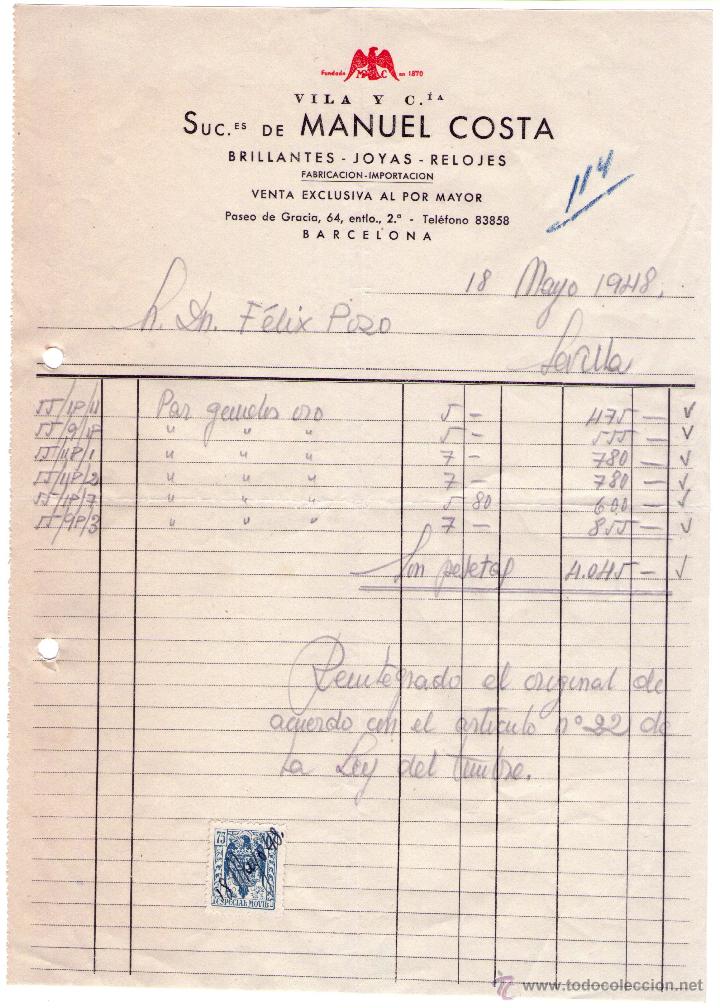 Fundada M C en 1870
VILA Y C.ÍA
SUC.ES DE MANUEL COSTA
BRILLANTES - JOYAS - RELOJES
FABRICACION - IMPORTACION
VENTA EXCLUSIVA AL POR MAYOR
Paseo de Gracia, 64, entlo., 2.ª - Teléfono 83858
BARCELONA
114
18 Mayo 1948.
Dn. Félix Pozo
Sevilla
Par gemelos oro 5 - 475 -
" " " 5 - 555 -
" " " 7 - 780 -
" " " 7 - 780 -
" " " 5 80 600 -
" " " 7 - 855 -
Son pesetas 4.045 -
Reintegrado el original de
acuerdo con el artículo nº 22 de
la Ley del timbre.
75
18 Mayo 48.
ESPECIAL MOVIL
www.todocoleccion.net